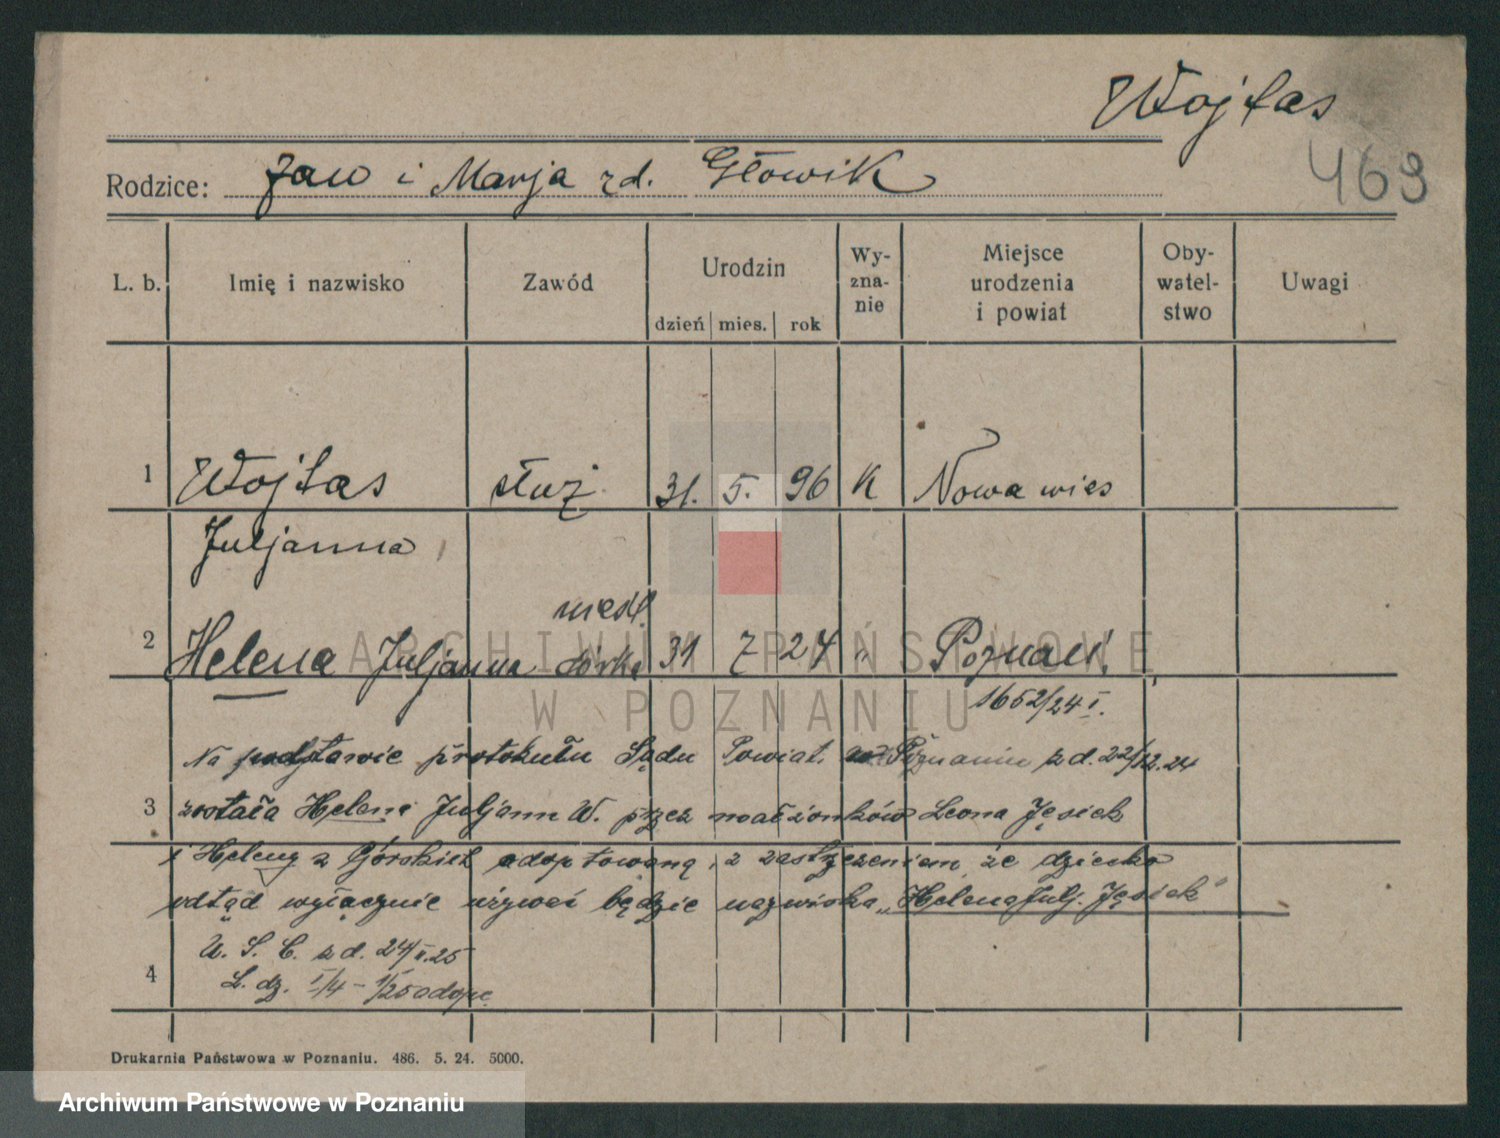 Wojtas
469
Rodzice: Jan i Marja zd. Głowik
L. b. Imię i nazwisko Zawód Urodzin Wy-zna-nie Miejsce urodzenia i powiat Oby-watel-stwo Uwagi
dzień mies. rok
1 Wojtas służ. 31. 5. 96 K Nowa wies
Juljanna
nieśl.
2 Helena Juljanna córka 31 7 24 " Poznań
1652/24 I.
ARCHIWUM PAŃSTWOWE
W POZNANIU
Na podstawie protokułu Sądu Powiat. w Poznaniu z d. 22/12.24
3 została Helena Juljanna W. przez małżonków Leona Jęsiek
i Heleny z Górskich adoptowaną, z zastrzeżeniem, że dziecko
odtąd wyłącznie używać będzie nazwiska „Helena Julj. Jęsiek"
U. S. C. z d. 24/II.25
4 L. dz. I/4 – 1/25 adopc.
Drukarnia Państwowa w Poznaniu. 486. 5. 24. 5000.
Archiwum Państwowe w Poznaniu